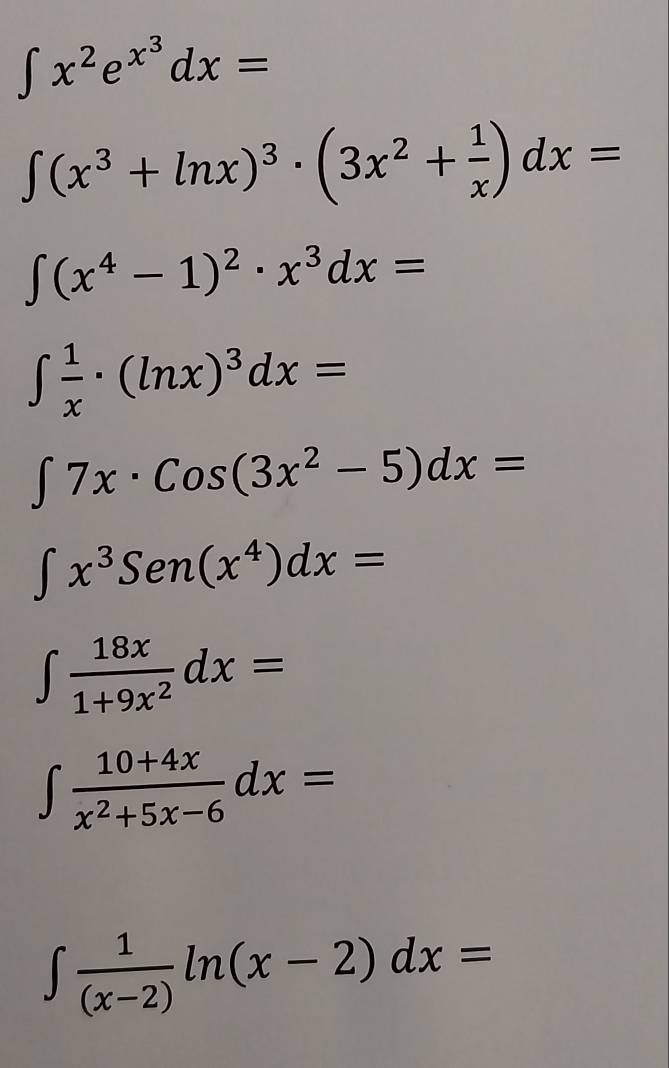 ∫ x²eˣ³ dx =
∫(x³ + lnx)³ · (3x² + 1/x) dx =
∫(x⁴ − 1)² · x³dx =
∫ 1/x · (lnx)³dx =
∫ 7x · Cos(3x² − 5)dx =
∫ x³Sen(x⁴)dx =
∫ 18x/1+9x² dx =
∫ 10+4x/x²+5x−6 dx =
∫ 1/(x−2) ln(x − 2) dx =